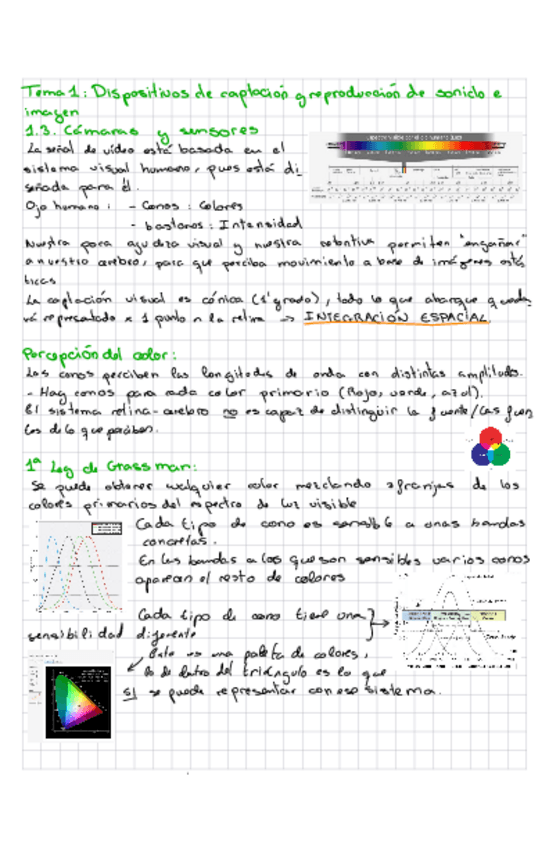 Tema 1: Dispositivos de captación y reproducción de sonido e
imagen
1.3. Cámaras y sensores
La señal de vídeo está basada en el
sistema visual humano, pues está di
señada para él.
Ojo humano: - Conos: Colores
- bastones: Intensidad
Nuestra poca agudeza visual y nuestra retentiva permiten "engañar"
a nuestro cerebro, para que perciba movimiento a base de imágenes está
ticas
La captación visual es cónica (1°grado), todo lo que abarque queda
rá representado x 1 punto n la retina → INTEGRACIÓN ESPACIAL.
Percepción del color:
Los conos perciben las longitudes de onda con distintas amplitudes.
- Hay conos para cada color primario (Rojo, verde, azul).
El sistema retina-cerebro no es capaz de distinguir la fuente/las fuen
tes de lo que perciben.
1ª Ley de Grassman:
Se puede obtener cualquier color mezclando 3 franjas de los
colores primarios del espectro de luz visible
Cada tipo de cono es sensible a unas bandas
concretas.
En las bandas a las que son sensibles varios conos
aparecen el resto de colores
Cada tipo de cono tiene una
sensibilidad diferente
Esto es una paleta de colores,
lo de dentro del triángulo es lo que
sí se puede representar con ese sistema.